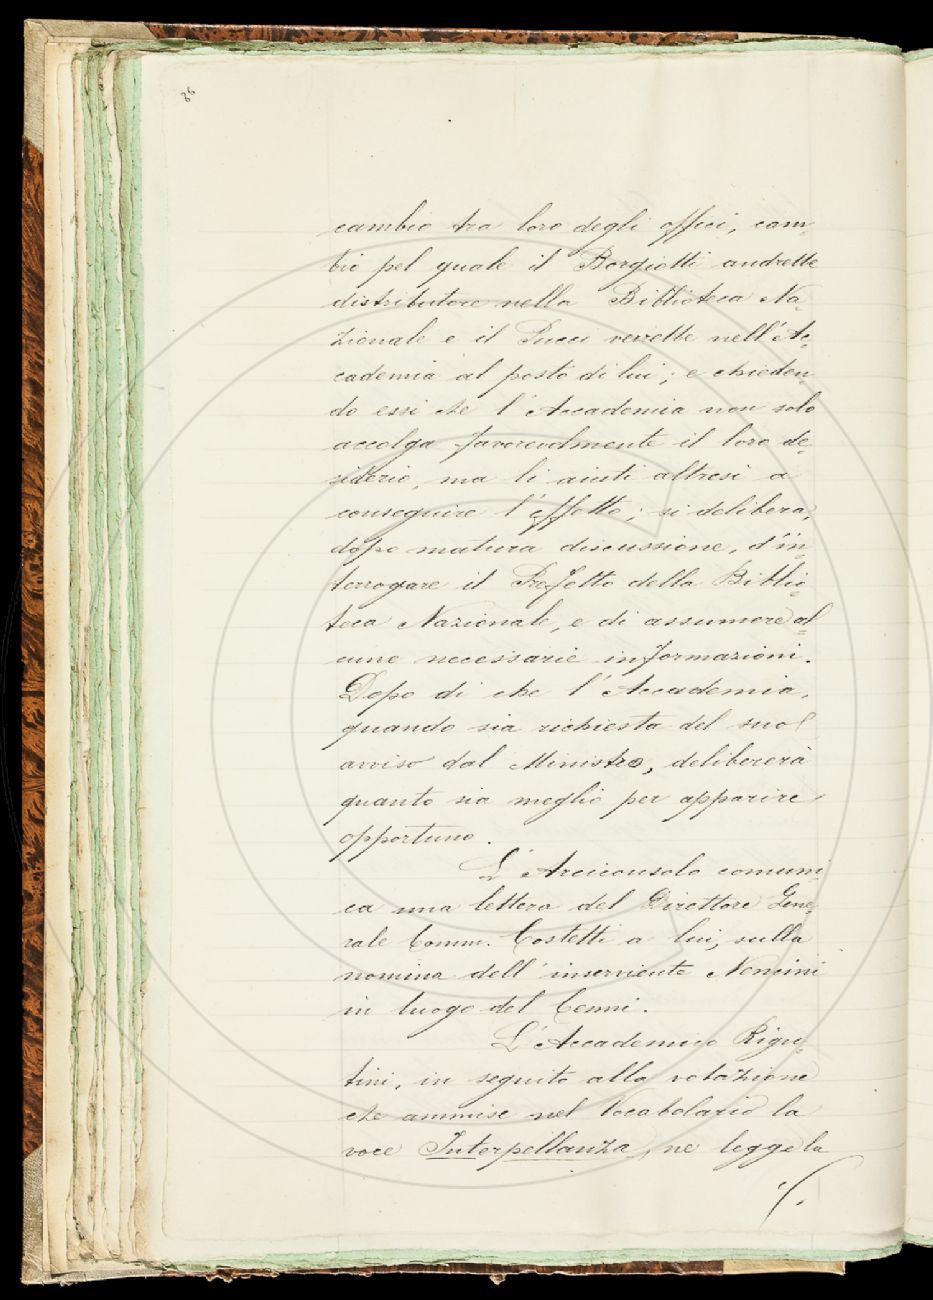 86
cambio tra loro degli officî, cam-
bio pel quale il Borgiotti andrebbe
distributore nella Biblioteca Na=
zionale e il Pucci verrebbe nell'Ac=
cademia al posto di lui; e chieden=
do essi che l'Accademia non solo
accolga favorevolmente il loro de=
siderio, ma li aiuti altresì a
conseguire l'effetto; si delibera,
dopo matura discussione, d'in=
terrogare il Prefetto della Biblio=
teca Nazionale, e di assumere al=
cune necessarie informazioni.
Dopo di che l'Accademia,
quando sia richiesta del suo
avviso dal Ministro, delibererà
quanto sia meglio per apparire
opportuno.
L'Arciconsolo comuni=
ca una lettera del Direttore Gene=
rale Comm. Costetti a lui, sulla
nomina dell'inserviente Nencini
in luogo del Cenni.
L'Accademico Rigu=
tini, in seguito alla votazione
che ammise nel Vocabolario la
voce Interpellanza, ne legge la